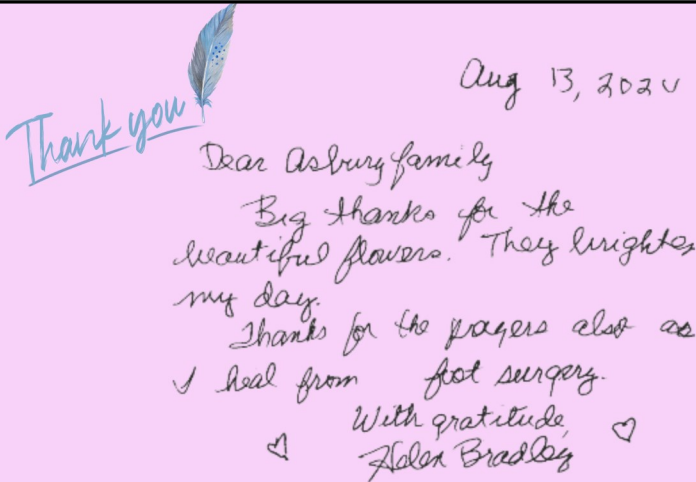 Thank you
Aug 13, 202
Dear Asbury family
Big thanks for the
beautiful flowers. They brighten
my day.
Thanks for the prayers also as
I heal from foot surgery.
With gratitude,
Helen Bradley